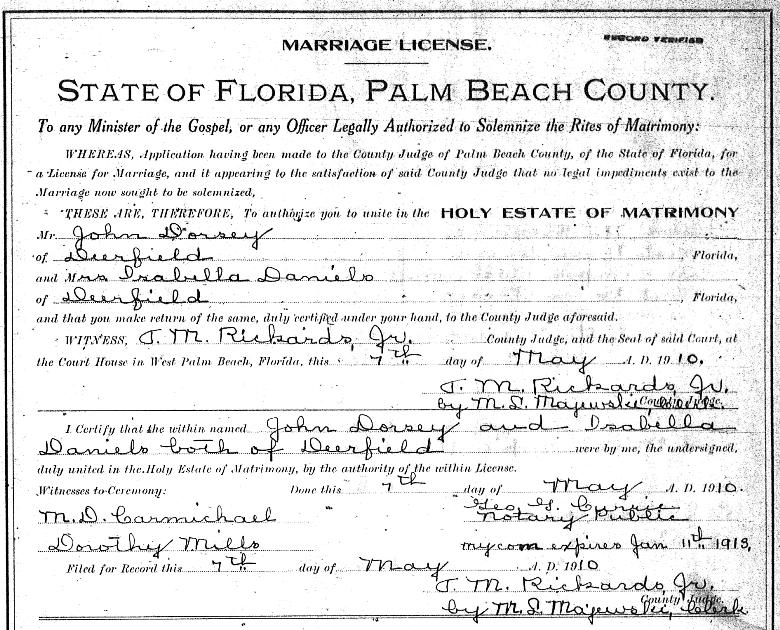 RECORD VERIFIED
MARRIAGE LICENSE.
STATE OF FLORIDA, PALM BEACH COUNTY.
To any Minister of the Gospel, or any Officer Legally Authorized to Solemnize the Rites of Matrimony:
WHEREAS, Application having been made to the County Judge of Palm Beach County, of the State of Florida, for
a License for Marriage, and it appearing to the satisfaction of said County Judge that no legal impediments exist to the
Marriage now sought to be solemnized,
THESE ARE, THEREFORE, To authorize you to unite in the HOLY ESTATE OF MATRIMONY
Mr. John Dorsey
of Deerfield Florida,
and Mrs Isabella Daniels
of Deerfield , Florida,
and that you make return of the same, duly certified under your hand, to the County Judge aforesaid.
WITNESS, T. M. Rickards, Jr. County Judge, and the Seal of said Court, at
the Court House in West Palm Beach, Florida, this 7th day of May A. D. 1910.
T. M. Rickards, Jr.
County Judge.
by M. S. Majewski, Clerk.
I Certify that the within named John Dorsey and Isabella
Daniels both of Deerfield were by me, the undersigned,
duly united in the Holy Estate of Matrimony, by the authority of the within License.
Witnesses to Ceremony: Done this 7th day of May A. D. 1910.
M. D. Carmichael Geo. G.
Notary Public
Dorothy Mills my com expires Jan 11th 1913,
Filed for Record this 7th day of May A. D. 1910
T. M. Rickards, Jr.
County Judge.
by M. S. Majewski, Clerk